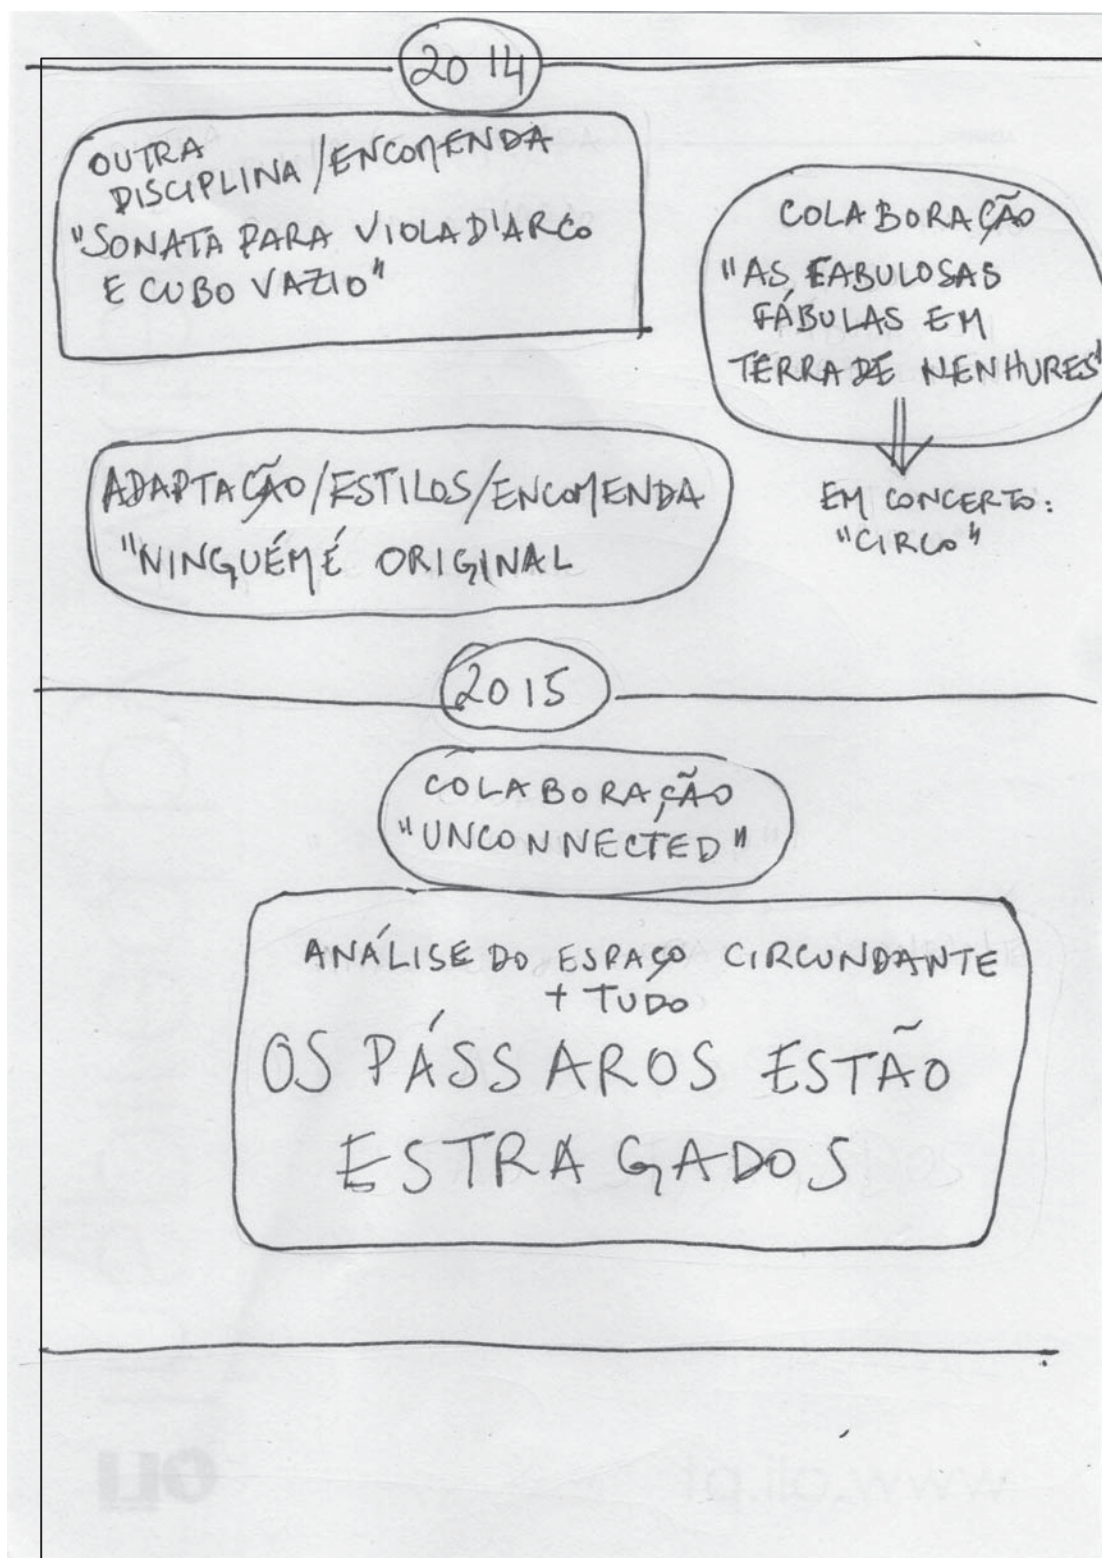 2014
OUTRA
DISCIPLINA/ENCOMENDA
"SONATA PARA VIOLA D'ARCO
E CUBO VAZIO"
COLABORAÇÃO
"AS FABULOSAS
FÁBULAS EM
TERRA DE NENHURES"
EM CONCERTO:
"CIRCO"
ADAPTAÇÃO/ESTILOS/ENCOMENDA
"NINGUÉM É ORIGINAL
2015
COLABORAÇÃO
"UNCONNECTED"
ANÁLISE DO ESPAÇO CIRCUNDANTE
+ TUDO
OS PÁSSAROS ESTÃO
ESTRAGADOS
OLI
www.oli.pt